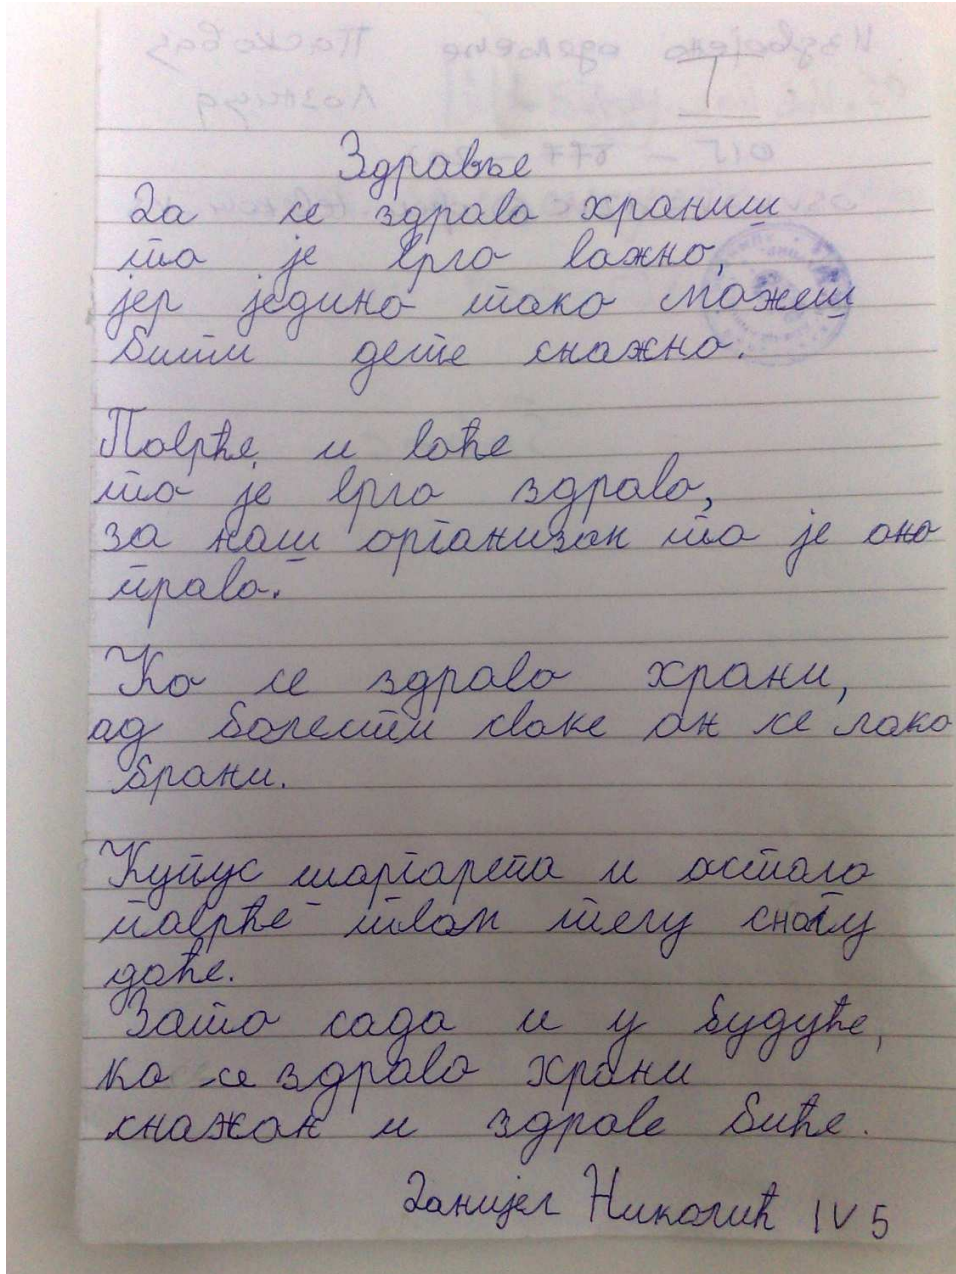 Здравље
Да се здраво храниш
то је врло важно,
јер једино тако можеш
бити дете снажно.
Поврће и воће
то је врло здраво,
за наш организан то је оно
право.
Ко се здраво храни,
од болести сваке он се лако
брани.
Купус шаргарепа и остало
поврће твом телу снагу
даће.
Зато сада и у будуће,
ко се здраво храни
снажан и здраве биће.
Данијел Николић IV 5